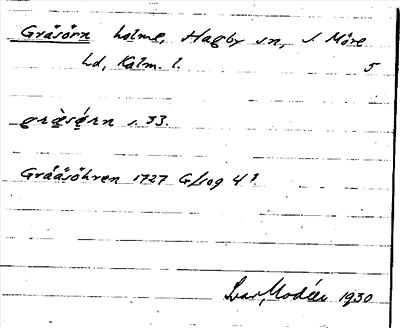 Gråsörn holme, Hagby sn, S. Möre
hd, Kalm. l. 5
gràsǿrn s. 33.
Grååsöhren 1727 G/109 4¹
Ivar Modéer 1930